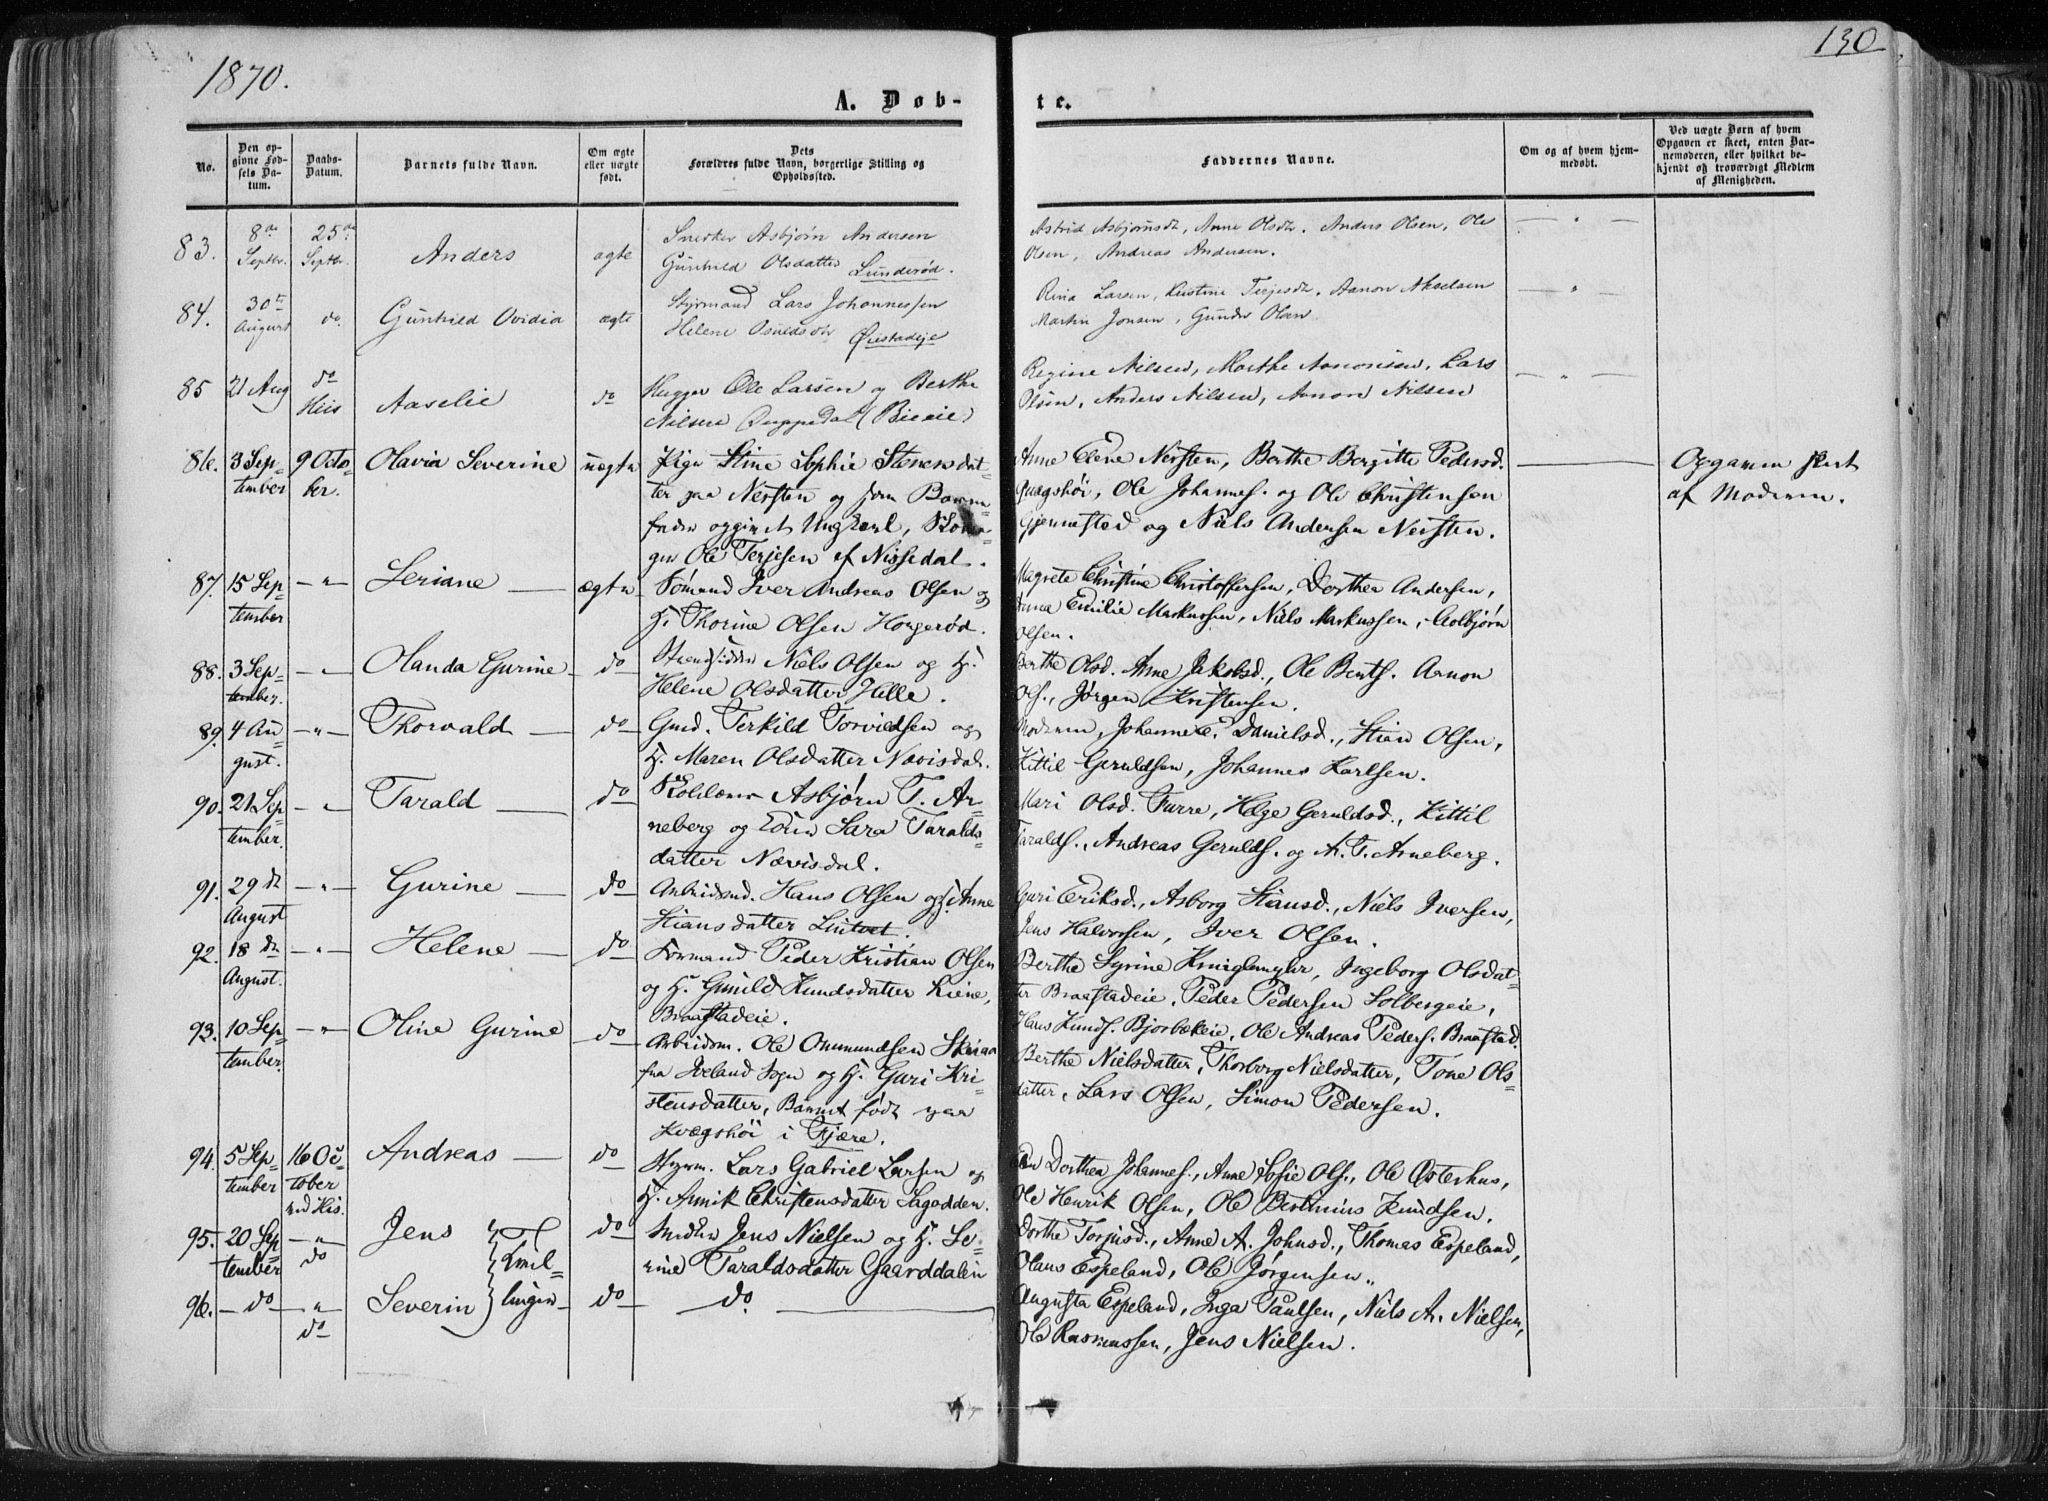 1870.
130
A. Døb-
te.
No.
Den op-
givne Fød-
sels Da-
tum.
Daabs-
Datum.
Barnets fulde Navn.
Om ægte
eller uægte
født.
Dets
Forældres fulde Navn, borgerlige Stilling og
Opholdssted.
Faddernes Navne.
Om og af hvem hjem-
medøbt.
Ved uægte Børn af hvem
Opgaven er skeet, enten Bar-
nemoderen, eller hvilket be-
kjendt og troværdigt Medlem
af Menigheden.
83.
8de
Septbr.
25de
Septbr.
Anders
ægte
Snedker Asbjørn Andersen
Gunhild Olsdatter Lunderød.
Astrid Asbjørnsdt, Anne Olsdtr. Anders Olsen, Ole
Olsen, Andreas Andersen.
84.
30te
August
do.
Gunhild Ovidia
ægte
Styrmand Lars Johannessen
Helene Osuldsdtr Øiestadeje
Rina Larsen, Kirstine Terjesdt. Aanon Akselsen
Martin Jonsen, Gunder Olsen
85
21 Aug
do
Hiis
Aaselie
do
Hugger Ole Larsen og Berthe
Nilsen
Regine Nilsen, Marthe Aanonsen, Lars
Olsen, Anders Nilsen, Aanon Nilsen
86.
3 Sep=
tember
9 Octo=
ber.
Olavia Severine
uægte
Pige Stine Sophie Stenersdat=
ter paa Nersten og som Barne=
fader opgivet Ungkarl, Skoma=
ger Ole Terjesen af Nissedal.
Anne Elene Nersten, Berthe Bergitte Pedersd.
Qvægshöi, Ole Johannes. og Ole Christensen
Gjennestad og Niels Andersen Nersten.
Opgaven skeet
af Moderen.
87.
15 Sep=
tember
— " —
Seriane
ægte
Sømand Iver Andreas Olsen og
H. Thorine Olsen Hougerød.
Magrete Christine Christoffersen, Dorthea Andersen,
Anna Emilie Markussen, Niels Markussen, Aasbjørn
Olsen.
88.
3 Sep=
tember.
— " —
Olanda Gurine
do
Strandsidder Niels Olsen og H.
Helene Olsdatter Helle.
Berthe Olsd. Anne Jakobsd., Ole Bents. Aanon
Ols., Jørgen Kristensen.
89.
4 Au=
gust.
— " —
Thorvald
do
Gmd. Terkild Torvildsen og
H. Maren Olsdatter Nævisdal.
Moderen, Johanne E. Danielsd., Stian Olsen,
Kittil Geruldsen, Johannes Karlsen.
90.
21 Sep=
tember.
— " —
Tarald
do
Skolelærer Asbjørn T. Ar=
neberg og Sara Taralds=
datter Nævisdal.
Mari Olsd. Furre, Helge Geruldsd., Kittil
Taralds., Andreas Gerulds. og A. T. Arneberg.
91.
29de
August
— " —
Gurine
do
Arbeidsmd. Hans Olsen og H. Anne
Stiansdatter Lintvet.
Guri Eriksd., Asborg Stiansd., Niels Iversen,
Jens Halvorsen, Iver Olsen.
92.
18de
August.
— " —
Helene
do
Formand Peder Kristian Olsen
og H. Gunild Knudsdatter Kiene,
Braastadeie.
Berthe Syrine Ingeborg Olsdat=
ter Braastadeie, Peder Pedersen Solbergeie,
Hans Knuds. Bjorbækeie, Ole Andreas Peders. Braastad.
93.
10 Sep=
tember.
— " —
Oline Gurine
do
Arbeidsm. Ole Ommundsen Skiraa
fra Iveland Sogn og H. Guri Kri=
stensdatter, Barnet født paa
Kvægshöi i Fjære.
Berthe Nielsdatter, Thorborg Nielsdatter, Tone Ols=
datter, Lars Olsen, Simon Pedersen.
94.
5 Sep=
tember
16 Oc=
tober
ved His.
Andreas
do
Styrm. Lars Gabriel Larsen og
H. Annik Christensdatter Sagodden.
Dorthea Johannes., Anne Sofie Ols., Ole Østerhus,
Ole Henrik Olsen, Ole Bertinius Knudsen.
95.
20 Sep
tember
— " —
do
Jens
Tvil=
linger
do
Snedker Jens Nielsen og H. Se=
rine Taraldsdatter Gaarddalen
Dorthe Torjusd., Anne A. Johnsd., Thomas Espeland,
Olaus Espeland, Ole Jørgensen.
96.
do
— " —
do
Severin
do
do
Augusta Espeland, Inga Paulsen, Niels A. Nielsen,
Ole Rasmussen, Jens Nielsen.